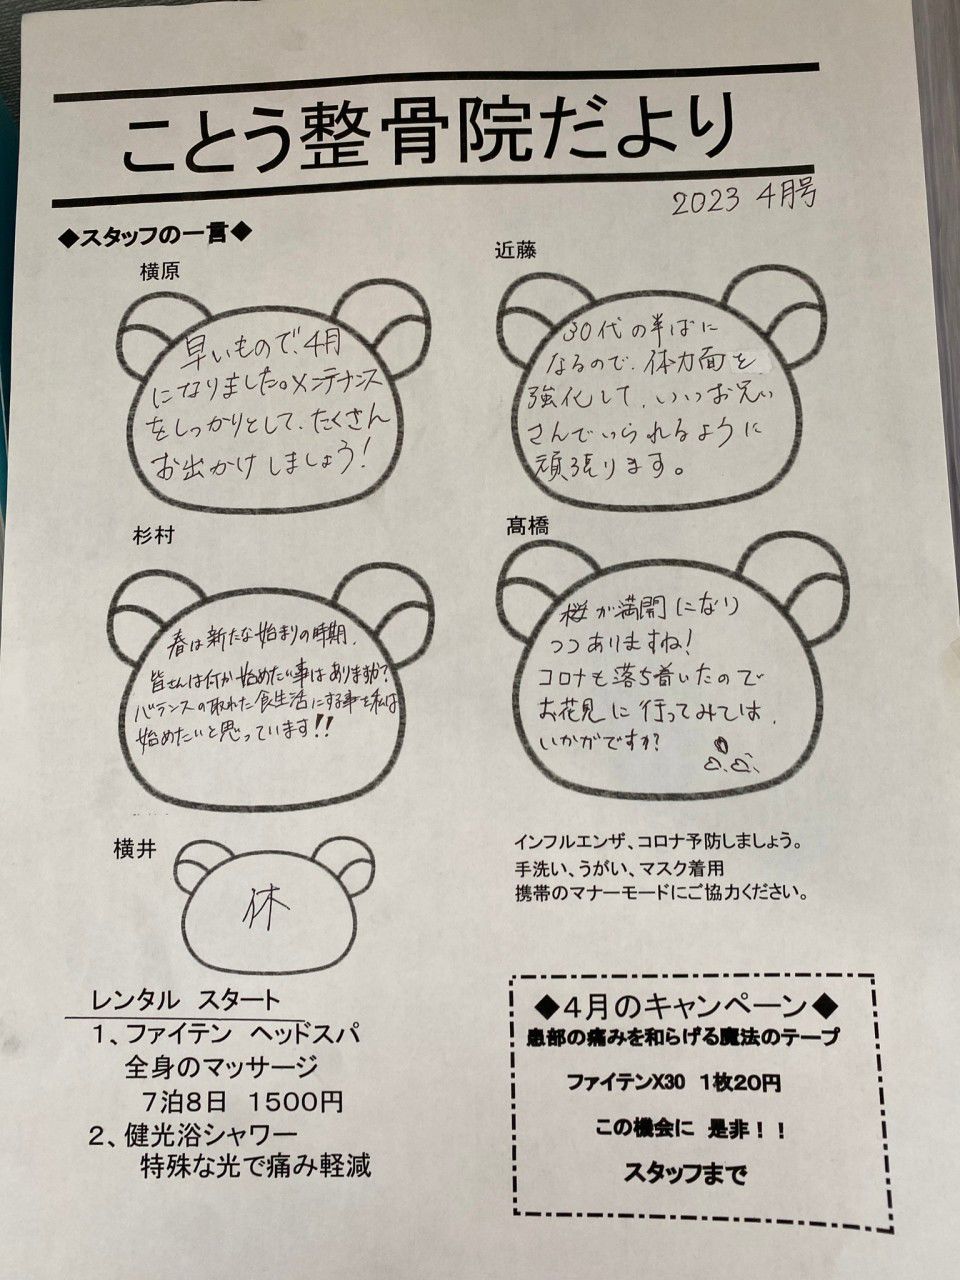 ことう整骨院だより
2023 4月号
◆スタッフの一言◆
横原
早いもので、4月
になりました。メンテナンス
をしっかりとして、たくさん
お出かけしましょう!
近藤
30代の半ばに
なるので、体力面を
強化して、いいお兄い
さんでいられるように
頑張ります。
杉村
春は新たな始まりの時期、
皆さんは何か始めたい事はありますか?
バランスの取れた食生活にする事を私は
始めたいと思っています!!
髙橋
桜が満開になり
つつありますね!
コロナも落ち着いたので
お花見に行ってみては、
いかがですか?
横井
休
インフルエンザ、コロナ予防しましょう。
手洗い、うがい、マスク着用
携帯のマナーモードにご協力ください。
レンタル スタート
1、ファイテン ヘッドスパ
全身のマッサージ
7泊8日 1500円
2、健光浴シャワー
特殊な光で痛み軽減
◆4月のキャンペーン◆
患部の痛みを和らげる魔法のテープ
ファイテンX30 1枚20円
この機会に 是非!!
スタッフまで